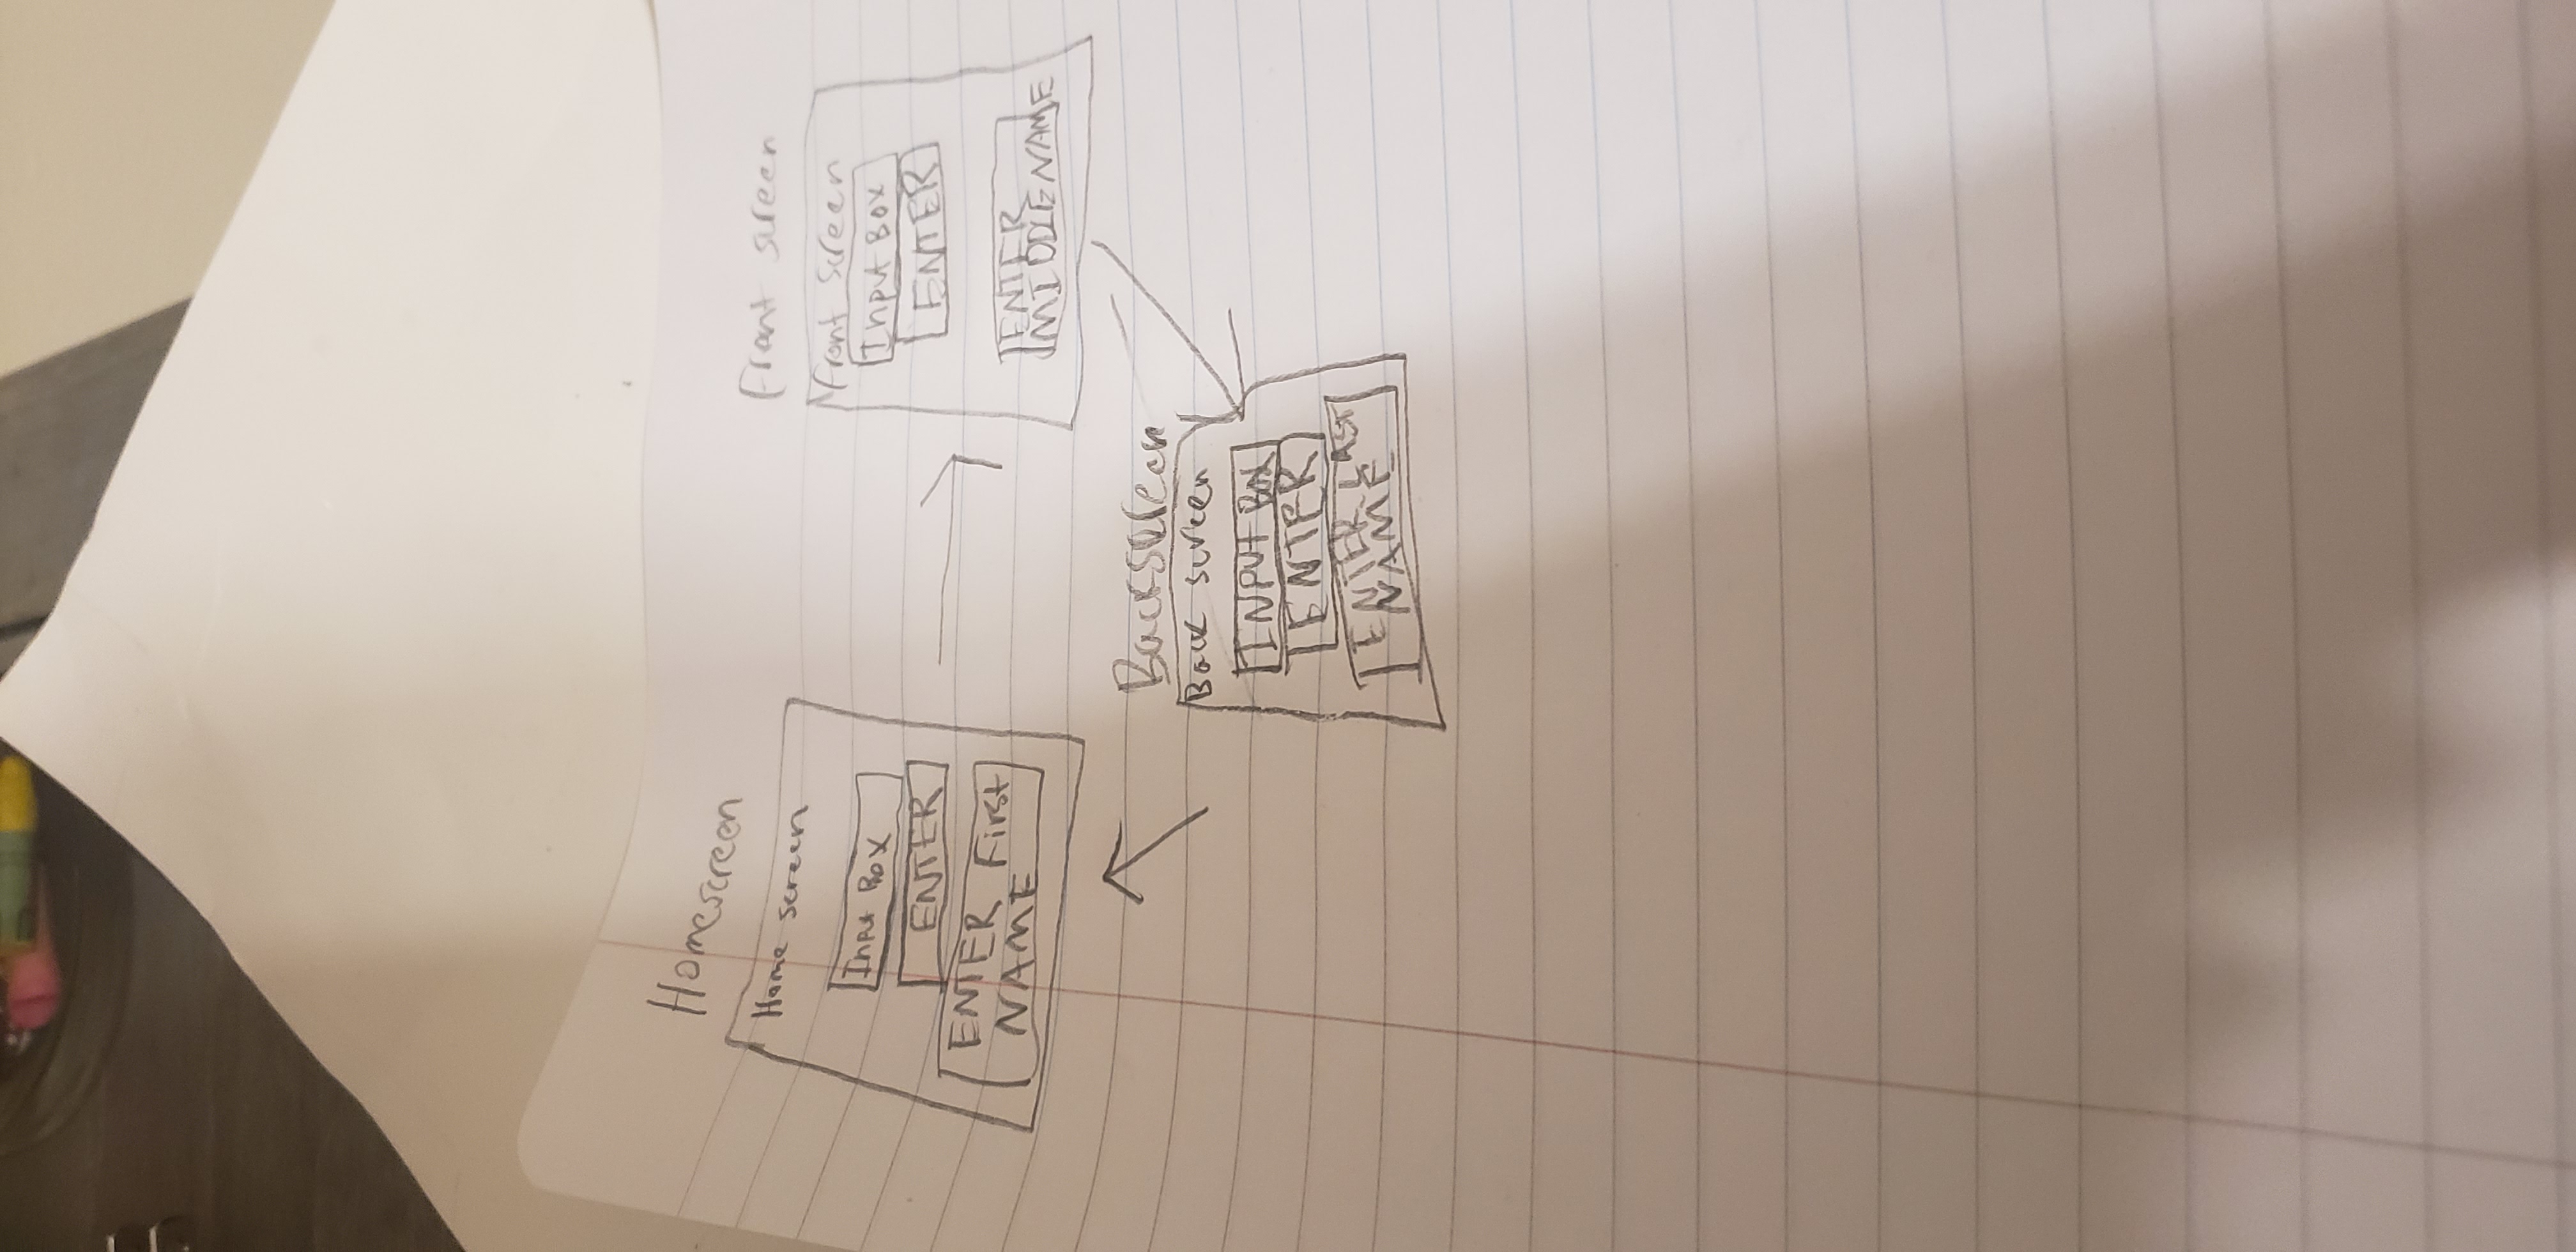 Homescreen
Home screen
Input Box
ENTER
ENTER First
NAME
Front screen
Front screen
Input Box
ENTER
ENTER
MIDDLE NAME
Backscreen
Back screen
INPUT BOX
ENTER
ENTER LAST
NAME